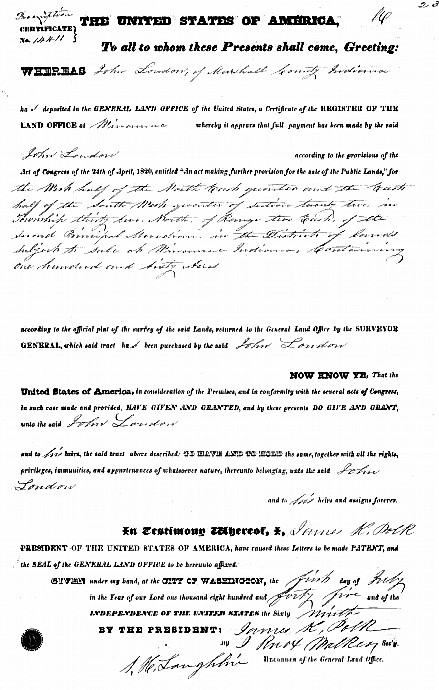 Preemption
CERTIFICATE
No. 1441
THE UNITED STATES OF AMERICA,
To all to whom these Presents shall come, Greeting:
WHEREAS John London, of Marshall County Indiana
ha d deposited in the GENERAL LAND OFFICE of the United States, a Certificate of the REGISTER OF THE
LAND OFFICE at Winamac whereby it appears that full payment has been made by the said
John London according to the provisions of the
Act of Congress of the 24th of April, 1820, entitled "An act making further provision for the sale of the Public Lands," for
the West half of the North East quarter and the East
half of the South West quarter of section twenty two in
Township thirty two North of Range two East, of the
second Principal Meridian in the District of Lands
subject to sale at Winamac Indiana, containing
one hundred and sixty Acres
according to the official plat of the survey of the said Lands, returned to the General Land Office by the SURVEYOR
GENERAL, which said tract ha s been purchased by the said John London
NOW KNOW YE, That the
United States of America, in consideration of the Premises, and in conformity with the several acts of Congress,
in such case made and provided, HAVE GIVEN AND GRANTED, and by these presents DO GIVE AND GRANT,
unto the said John London
and to his heirs, the said tract above described: TO HAVE AND TO HOLD the same, together with all the rights,
privileges, immunities, and appurtenances of whatsoever nature, thereunto belonging, unto the said John
London
and to his heirs and assigns forever.
In Testimony Whereof, I, James K. Polk
PRESIDENT OF THE UNITED STATES OF AMERICA, have caused these Letters to be made PATENT, and
the SEAL of the GENERAL LAND OFFICE to be hereunto affixed.
GIVEN under my hand, at the CITY OF WASHINGTON, the first day of July
in the Year of our Lord one thousand eight hundred and forty five and of the
INDEPENDENCE OF THE UNITED STATES the Sixty ninth
BY THE PRESIDENT: James K. Polk
By J Knox Walker Sec'y.
S. H. Laughlin RECORDER of the General Land Office.